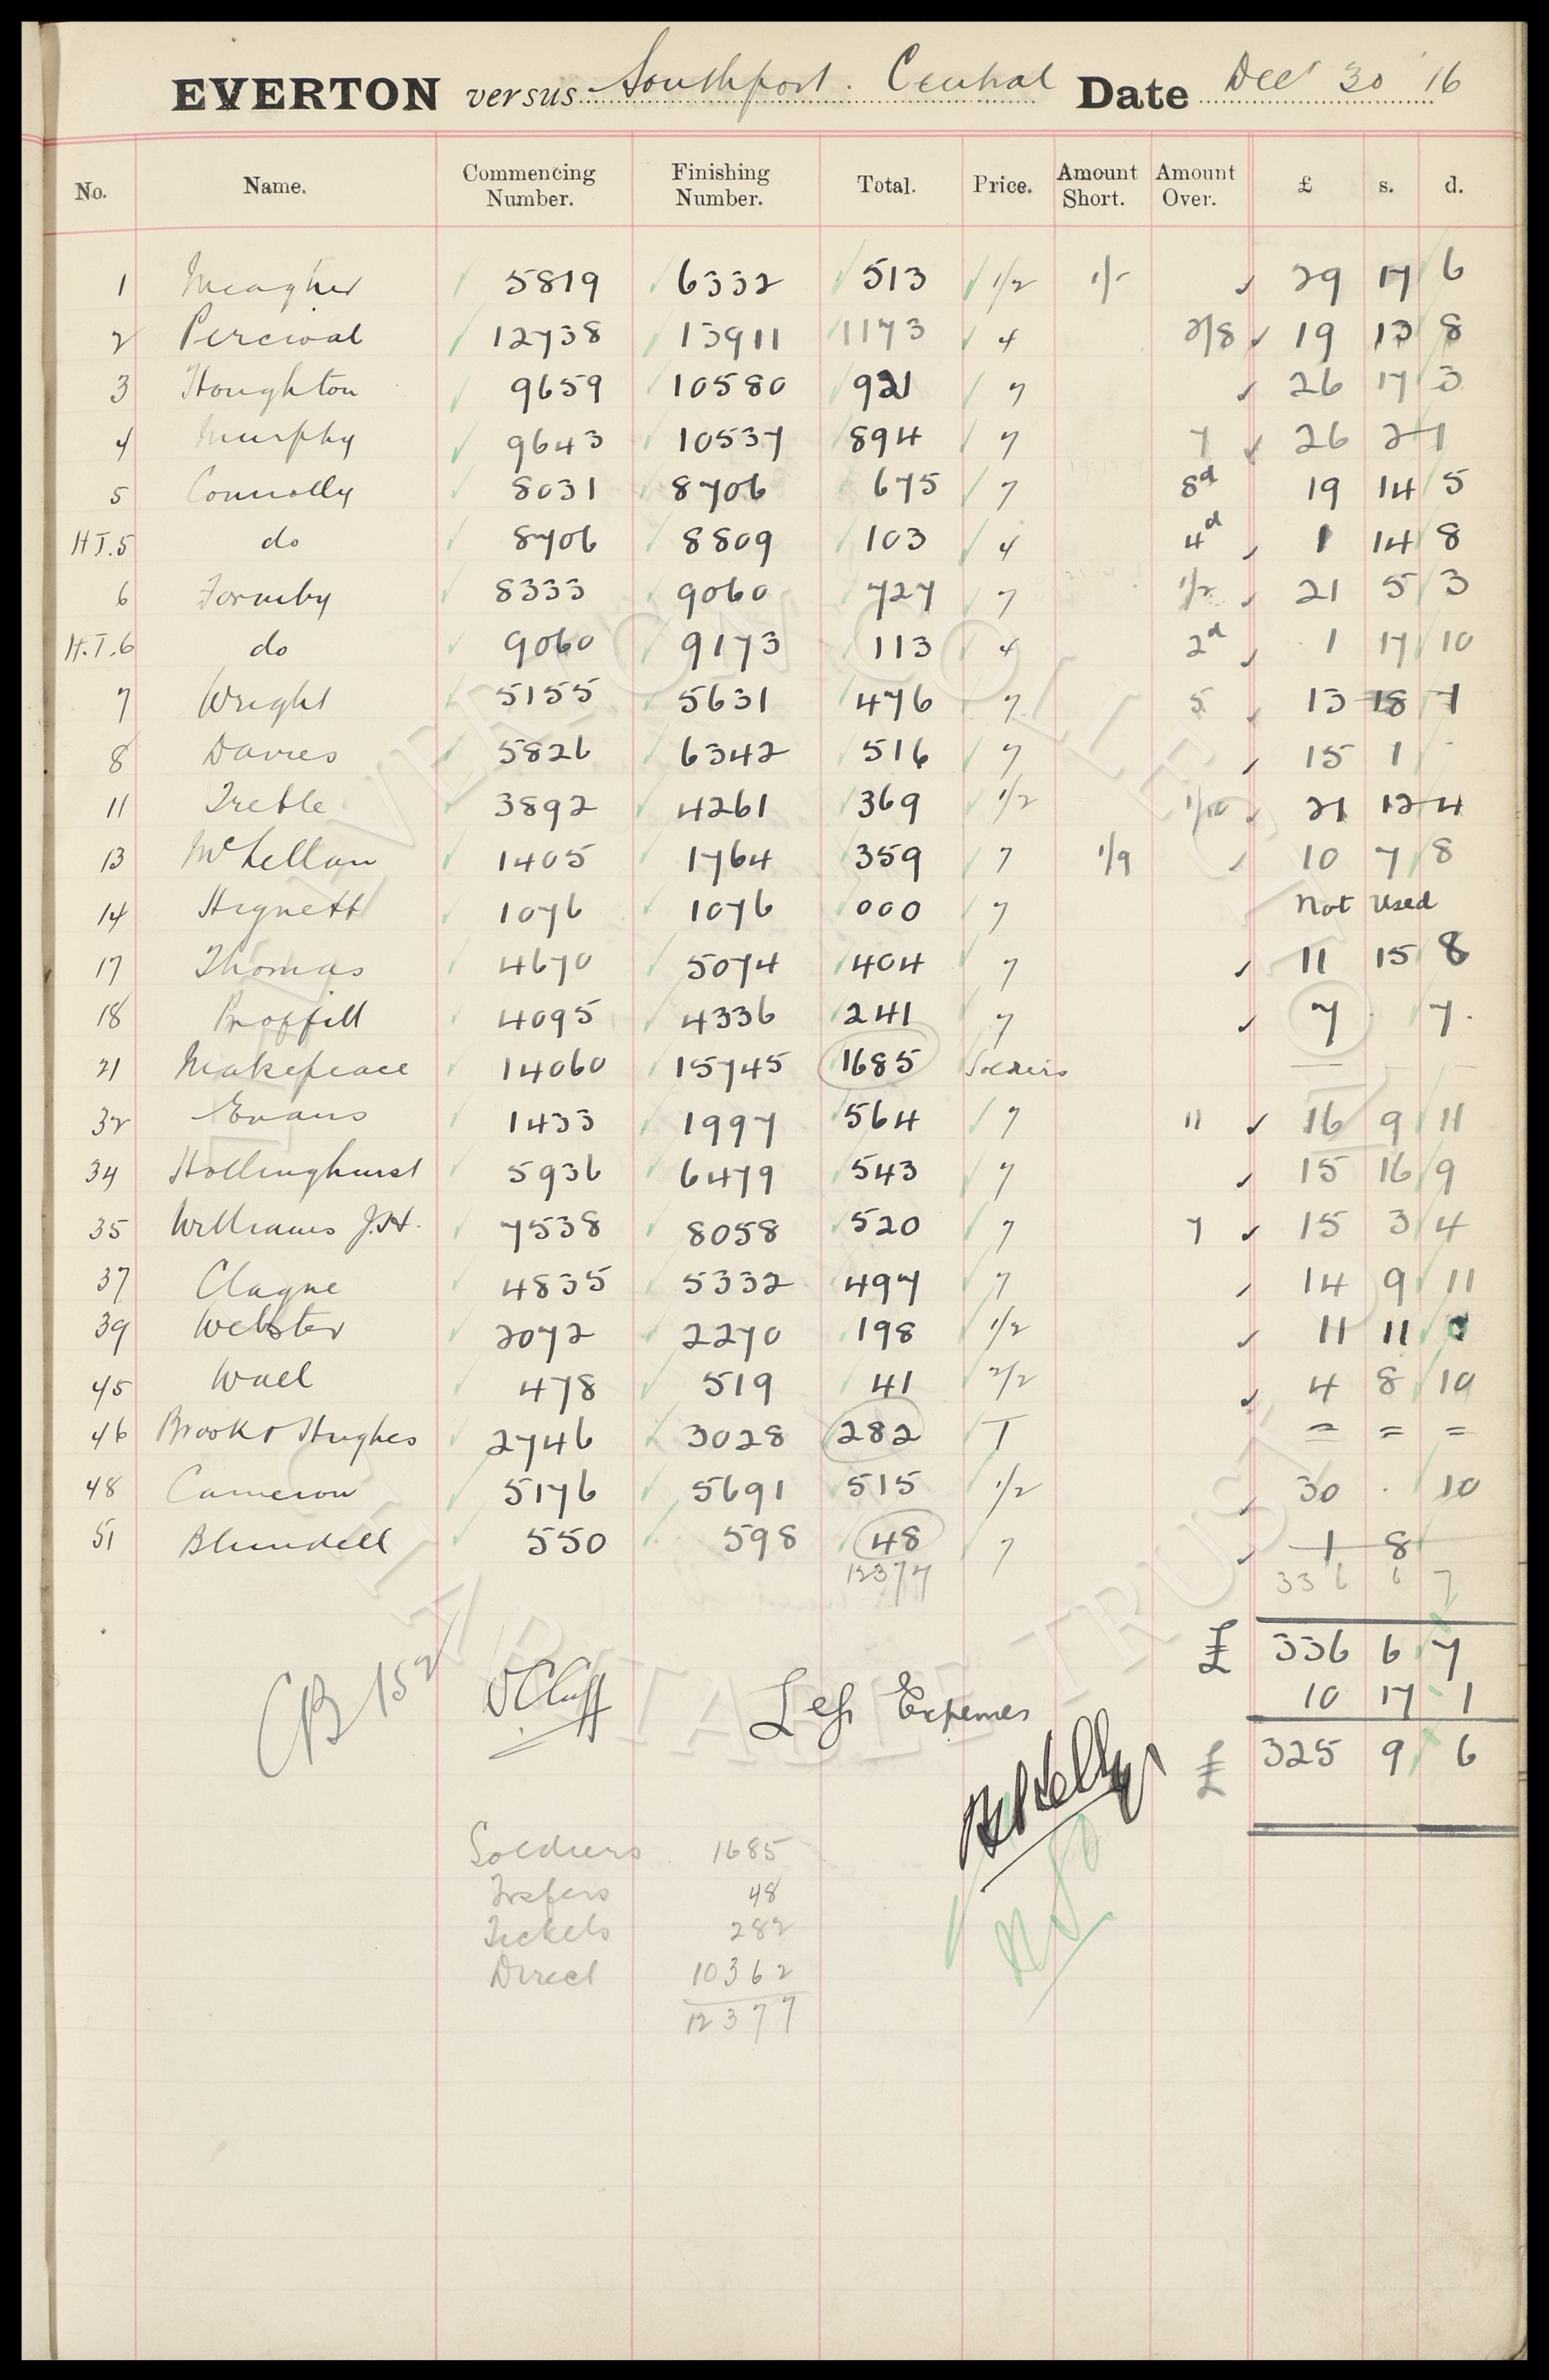 EVERTON versus Southport Central Date Dec 30 '16
No. Name. Commencing Number. Finishing Number. Total. Price. Amount Short. Amount Over. £ s. d.
1 Meagher 5819 6332 513 1/2 1/- 29 17 6
2 Percival 12738 13911 1173 4 2/8 19 13 8
3 Houghton 9659 10580 921 7 26 17 3
4 Murphy 9643 10537 894 7 7 26 2 1
5 Connolly 8031 8706 675 7 8d 19 14 5
H.T.5 do 8706 8809 103 4 4d 1 14 8
6 Formby 8333 9060 727 7 1/2 21 5 3
H.T.6 do 9060 9173 113 4 2d 1 17 10
7 Wright 5155 5631 476 7 5 13 18 1
8 Davies 5826 6342 516 7 15 1
11 Treble 3892 4261 369 1/2 1/10 21 12 4
13 McLellan 1405 1764 359 7 1/9 10 7 8
14 Hignett 1076 1076 000 7 Not Used
17 Thomas 4670 5074 404 7 11 15 8
18 Proffitt 4095 4336 241 7 7 . 7.
21 Makepeace 14060 15745 1685 Soldiers
32 Evans 1433 1997 564 7 11 16 9 11
34 Hollinghurst 5936 6479 543 7 15 16 9
35 Williams J.H. 7538 8058 520 7 7 15 3 4
37 Clague 4835 5332 497 7 14 9 11
39 Webster 2072 2270 198 1/2 11 11 0
45 Wall 478 519 41 2/2 4 8 10
46 Brook & Hughes 2746 3028 282 T = = =
48 Cameron 5176 5691 515 1/2 30 . 10
51 Blundell 550 598 48 7 1 8
12377 336 6 7
£ 336 6 7
CB 152 Cluff Less Expenses 10 17 1
£ 325 9 6
Soldiers 1685
Trsfers 48
Tickets 282
Direct 10362
12377
EVERTON COLLECTION
CHARITABLE TRUST